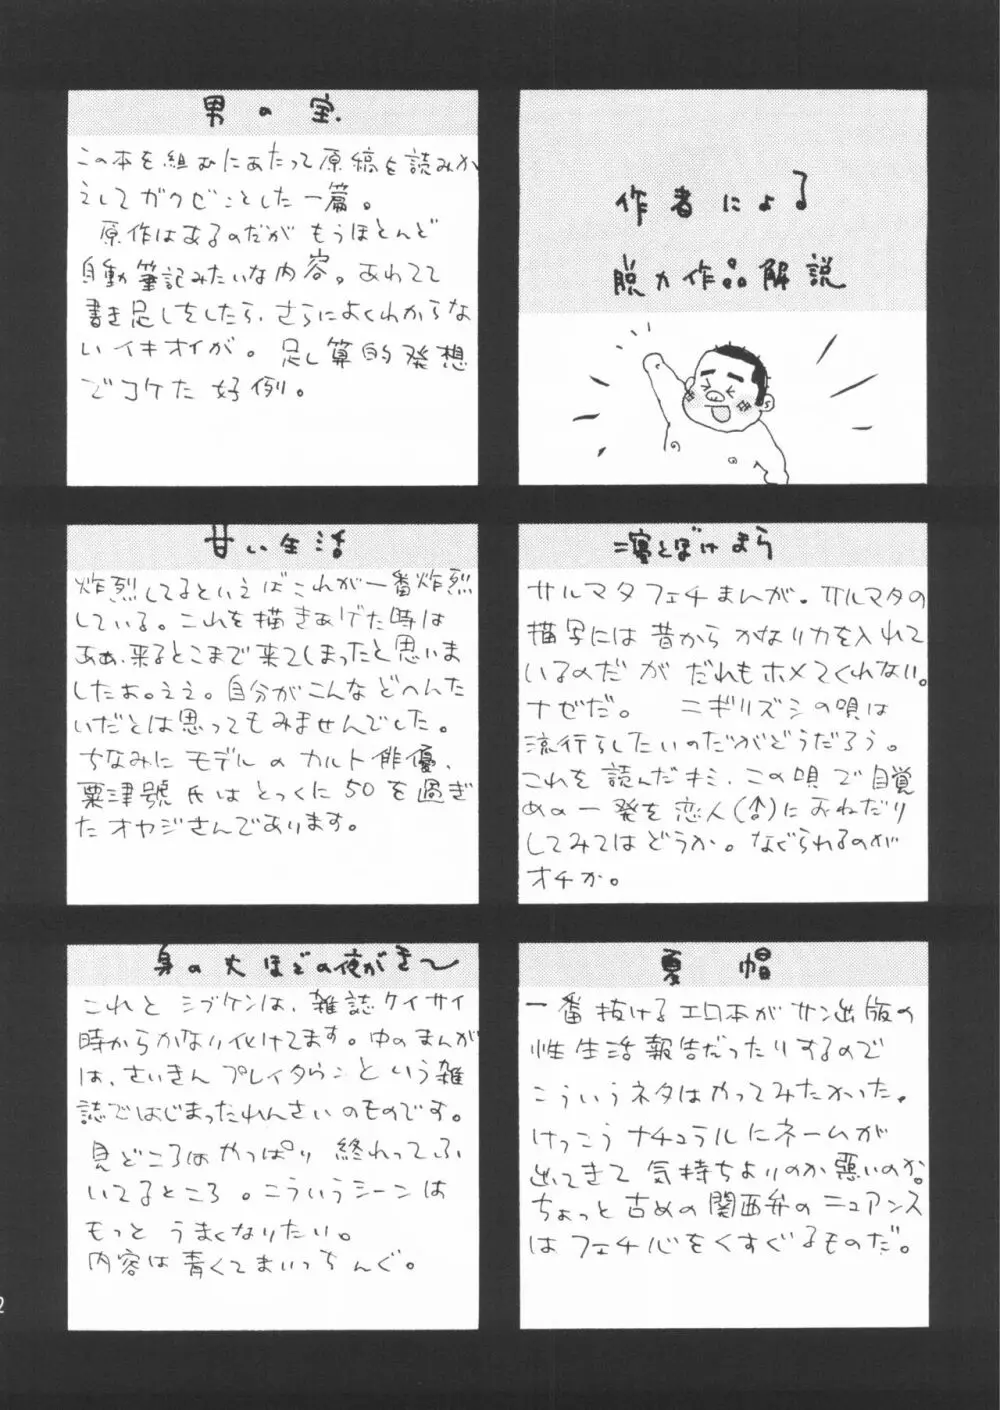 作者による
脱力作品解説
寝とぼけまら
サルマタフェチまんが。サルマタの
描写には昔からかなり力を入れて
いるのだがだれもホメてくれない。
ナゼだ。 ニギリズシの唄は
流行らしたいのだがどうだろう。
これを読んだキミ、この唄で目覚
めの一発を恋人(♂)におねだり
してみてはどうか。なぐられるのが
オチか。
夏帽
一番抜けるエロ本がサン出版の
性生活報告だったりするので
こういうネタはやってみたかった。
けっこうナチュラルにネームが
出てきて気持ちよいのか悪いのか。
ちょっと古めの関西弁のニュアンス
はフェチ心をくすぐるものだ。
男の宝
この本を組むにあたって原稿を読みか
えしてガクゼンとした一篇。
原作はあるのだがもうほとんど
自動筆記みたいな内容。あわてて
書き足しをしたら、さらによくわからな
いイキオイが。足し算的発想
でコケた好例。
甘い生活
炸烈してるといえばこれが一番炸烈
している。これを描きあげた時は
ああ、来るとこまで来てしまったと思いま
したよ。ええ。自分がこんなどへんた
いだとは思ってもみませんでした。
ちなみにモデルのカルト俳優、
粟津號氏はとっくに50を過ぎ
たオヤジさんであります。
身の丈ほどの夜がき〜
これとシブケンは、雑誌ケイサイ
時からかなり化けてます。中のまんが
は、さいきんプレイタウンという雑
誌ではじまったれんさいのものです。
見どころはやっぱり終わってふ
いてるところ。こういうシーンは
もっとうまくなりたい。
内容は青くてまいっちんぐ。
2